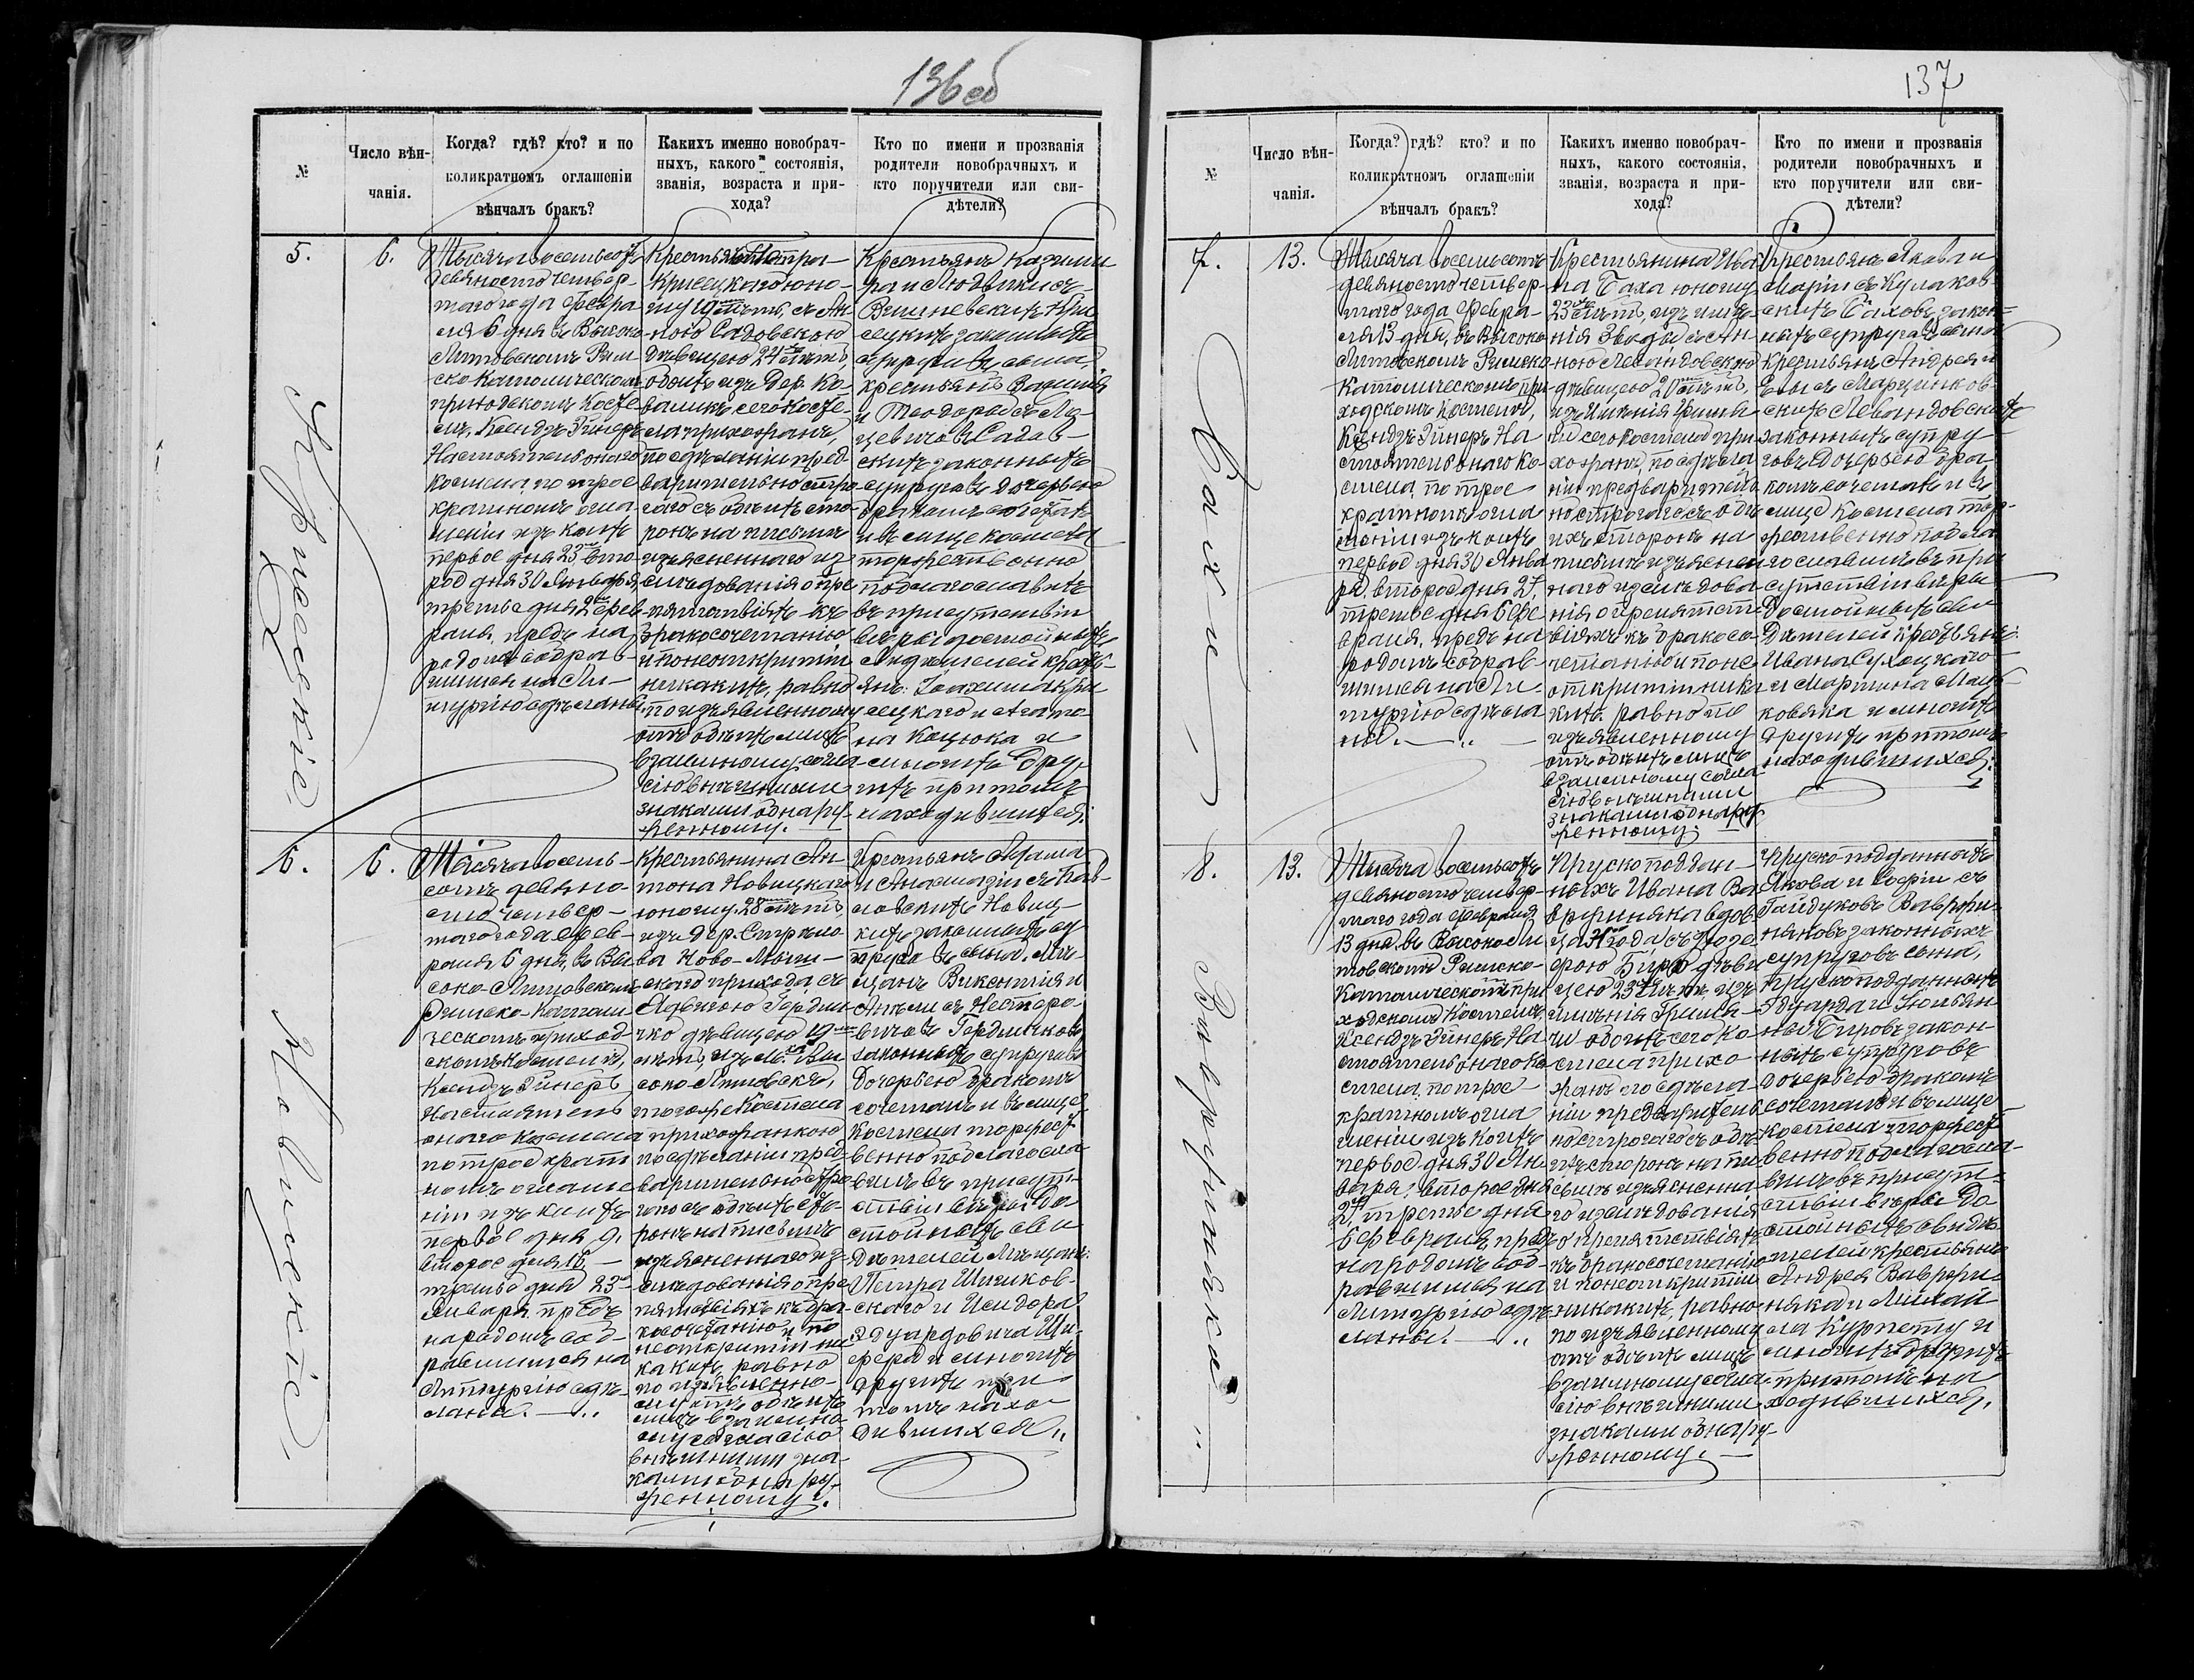 136 об
№
Число вѣн-
чанія.
Когда? гдѣ? кто? и по
коликратномъ оглашеніи
вѣнчалъ бракъ?
Какихъ именно новобрач-
ныхъ, какого состоянія,
званія, возраста и при-
хода?
Кто по имени и прозванія
родители новобрачныхъ и
кто поручители или сви-
дѣтели?
5.
Крисецкіе.
6.
Тысяча восемьсотъ
девяносто четвер-
таго года Февра-
ля 6 дня въ Высоко-
Литовскомъ Рим-
ско Католическомъ
приходскомъ Косте-
лѣ, Ксендзъ Эйнеръ
Настоятель онаго
костела, по трое
кратномъ огла-
шеніи изъ коихъ
первое дня 23, вто-
рое дня 30 Января,
третье дня 2 Фев-
раля, предъ на
родомъ собрав-
шимся на Ли-
тургію сдѣланы.
Крисецкаго юно-
шу 19 лѣтъ, съ Ан-
ною Садовскою
дѣвицею 24 лѣтъ,
обоихъ изъ дер. Ко-
валикъ сего Косте-
ла прихожанъ,
по сдѣланіи пред-
варительно стро-
гаго съ обѣихъ сто-
ронъ на письмѣ
изъясненнаго из-
слѣдованія о пре
пятствіяхъ къ
бракосочетанію
и по неоткрытіи
никакихъ, равно
по изъявленному
отъ обѣихъ лицъ
взаимному согла-
сію внѣшними
знаками обнару-
женному.
Крестьянъ Казими
ра и Людвики съ
Вишневскихъ Кри
сецкихъ законныхъ
супруговъ сына,
крестьянъ
и Теодоры съ
Садов-
скихъ законныхъ
супруговъ дочерью
бракомъ сочеталъ
и въ лице костела
торжественно
поблагословилъ
въ присутствіи
вѣры достойныхъ
свидѣтелей кресть-
янъ: Іоахима Кри
сецкаго и
на Коцюка и
многихъ дру-
гихъ при томъ
находившихся.
6.
Новицкіе.
6.
Тысяча восемь-
сотъ девяно-
сто четвер-
таго года Фев-
раля 6 дня, въ Вы
соко-Литовскомъ
Римско-Католи
ческомъ приход
скомъ Костелѣ,
Ксендзъ Эйнеръ
Настоятель
онаго костела
по трое крат
номъ оглаше
ніи изъ коихъ
первое дня 9,
второе дня 16,
третье дня 23
Января, предъ
народомъ соб-
равшимся на
Литургію сдѣ-
ланы.
Крестьянина Ан
тона Новицкаго
юношу 28 лѣтъ
изъ дер.
Ново-
скаго прихода, съ
Ядвигою
дѣвицею 19
лѣтъ, изъ М. Вы
соко-Литовскъ,
того же Костела
прихожанкою
по сдѣланіи пред
варительно стро
гаго съ обѣихъ сто-
ронъ на письмѣ
изъясненнаго из-
слѣдованія о пре
пятствіяхъ къ бра-
косочетанію и по
неоткрытіи ни
какихъ, равно
по изъявленно-
му отъ обѣихъ
лицъ взаимно
му согласію
внѣшними зна-
ками обнару-
женному.
Крестьянъ Адама
и Анастазіи съ
Новиц-
кихъ законныхъ су
пруговъ сына, Мѣ-
щанъ Викентія и
съ Нестеро-
вичовъ
законныхъ супруговъ
дочерью бракомъ
сочеталъ и въ лице
костела торжест
венно поблагосло
вилъ въ присутст
ствіи вѣры до-
стойныхъ сви
дѣтелей Мѣщанъ:
Петра
скаго и Исидора
Эдуардовича
и многихъ
другихъ при
томъ нахо-
дившихся.
137
№
Число вѣн-
чанія.
Когда? гдѣ? кто? и по
коликратномъ оглашеніи
вѣнчалъ бракъ?
Какихъ именно новобрач-
ныхъ, какого состоянія,
званія, возраста и при-
хода?
Кто по имени и прозванія
родители новобрачныхъ и
кто поручители или сви-
дѣтели?
7.
Бахи
13.
Тысяча восемьсотъ
девяносто четвер-
таго года Февра-
ля 13 дня, въ Высоко
Литовскомъ Римско
Католическомъ при
ходскомъ Костелѣ,
Ксендзъ Эйнеръ На
стоятель онаго Ко-
стела, по трое
кратномъ огла
шеніи изъ коихъ
первое дня 30 Янва
ря, второе дня 2,
третье дня 6 Фе
враля, предъ на
родомъ собрав-
шимся на Ли-
тургію сдѣла
ны.
Крестьянина Ива
на Баха юношу
23 лѣтъ, изъ имѣ-
нія Зводы съ Ан
ною Левандовскою
дѣвицею 20 лѣтъ,
изъ имѣнія
сего Костела при
хожанъ, по сдѣла
ніи предваритель
но строгаго съ обѣ
ихъ сторонъ на
письмѣ изъяснен
наго изслѣдова
нія о препятст
віяхъ къ бракосо-
четанію и по не
открытіи ника
кихъ, равно по
изъявленному
отъ обѣихъ лицъ
взаимному согла
сію внѣшними
знаками обнару
женному.
Крестьянъ Якова и
Маріи съ Кулаков
скихъ Баховъ, закон=
ныхъ супруговъ сына
крестьянъ Андрея и
съ Марцинков-
скихъ Левандовскихъ
законныхъ супру-
говъ дочерью бра-
комъ сочеталъ и въ
лице костела тор-
жественно побла
гословилъ въ при
сутствіи вѣры
достойныхъ сви
дѣтелей крестьянъ:
Ивана Сухоцкаго
и Мартина Мац-
ковяка и многихъ
другихъ при томъ
находившихся.
8.
Вавржиняки..
13.
Тысяча восемьсотъ
девяносто четвер-
таго года Февраля
13 дня, въ Высоко Ли
товскомъ Римско-
Католическомъ при
ходскомъ Костелѣ,
Ксендзъ Эйнеръ На
стоятель онаго Ко
стела, по трое-
кратномъ огла
шеніи изъ коихъ
первое дня 30 Ян
варя, второе дня
2, третье дня
6 Февраля, предъ
народомъ соб-
равшимся на
Литургію сдѣ
ланы.
Пруско поддан-
ныхъ Ивана Ва
вржиняка вдов
ца года съ Юзе
фою дѣви
цею 23 лѣтъ, изъ
имѣнія
обоихъ сего Ко-
стела прихо-
жанъ по сдѣла-
ніи предваритель
но строгаго съ обѣ-
ихъ сторонъ на пи
сьмѣ изъясненна
го изслѣдованія
о препятствіяхъ
къ бракосочетанію
и по неоткрытіи
никакихъ, равно
по изъявленному
отъ обѣихъ лицъ
взаимному согла-
сію внѣшними
знаками обнару-
женному.
Пруско-подданныхъ
Якова и Софіи съ
Гайдуковъ Вавржи
няковъ законныхъ
супруговъ сына,
Прускоподданныхъ
Эдуарда и Юльян
ны закон-
ныхъ супруговъ
дочерью бракомъ
сочеталъ и въ лице
костела торжест
венно поблагосло-
вилъ въ присутст-
ствіи вѣры до
стойныхъ свидѣ
телей крестьянъ
Андрея Вавржи
няка и Михай
ла и
многихъ другихъ
при томъ на
ходившихся.